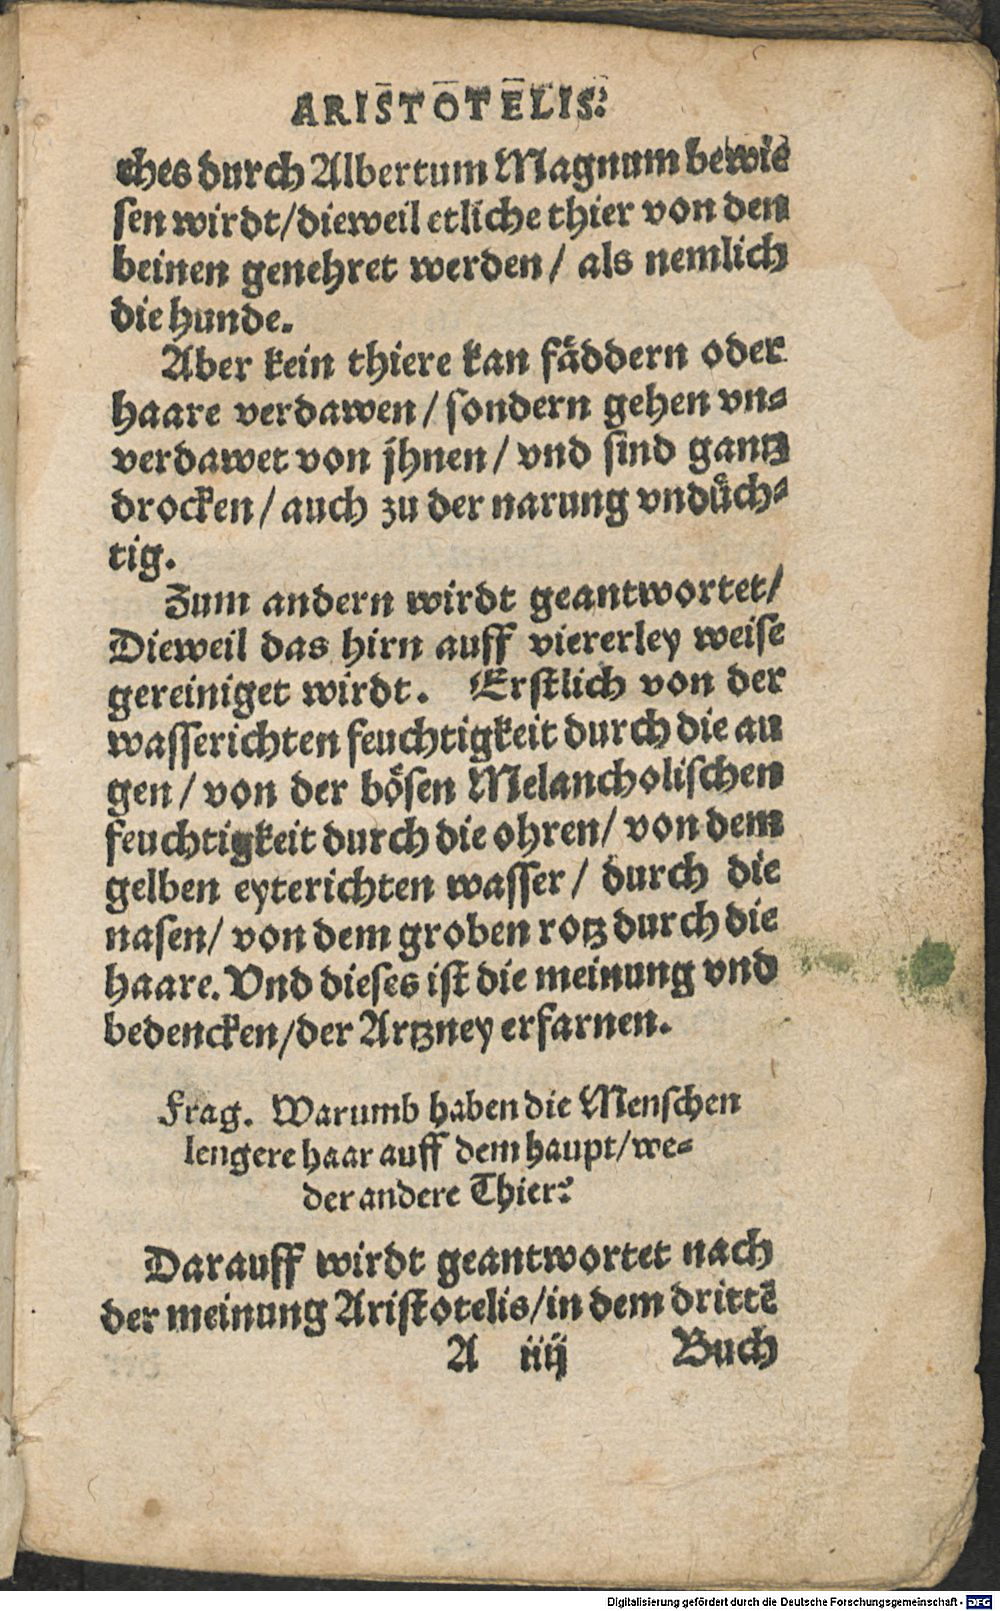 ARISTOTELIS.
ches durch Albertum Magnum bewie
sen wirdt/dieweil etliche thier von den
beinen genehret werden/ als nemlich
die hunde.
Aber kein thiere kan fäddern oder
haare verdawen/sondern gehen vn-
verdawet von jhnen/ vnd sind gantz
drocken/auch zu der narung vndüch-
tig.
Zum andern wirdt geantwortet/
Dieweil das hirn auff viererley weise
gereiniget wirdt. Erstlich von der
wasserichten feuchtigkeit durch die au
gen/ von der bösen Melancholischen
feuchtigkeit durch die ohren/ von dem
gelben eyterichten wasser/ durch die
nasen/ von dem groben rotz durch die
haare. Vnd dieses ist die meinung vnd
bedencken/der Artzney erfarnen.
Frag. Warumb haben die Menschen
lengere haar auff dem haupt/we-
der andere Thier?
Darauff wirdt geantwortet nach
der meinung Aristotelis/in dem drittē
A iiij Buch
Digitalisierung gefördert durch die Deutsche Forschungsgemeinschaft - DFG